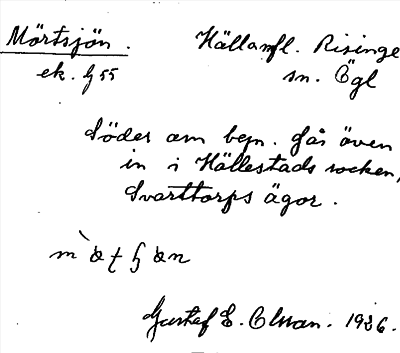 Mörtsjön. Hällamfl. Risinge
ek. G 55 sn. Ögl
Söder om bepn. Går även
in i Hällestads socken,
Svarttorps ägor.
Gustaf E. Olsson. 1926.